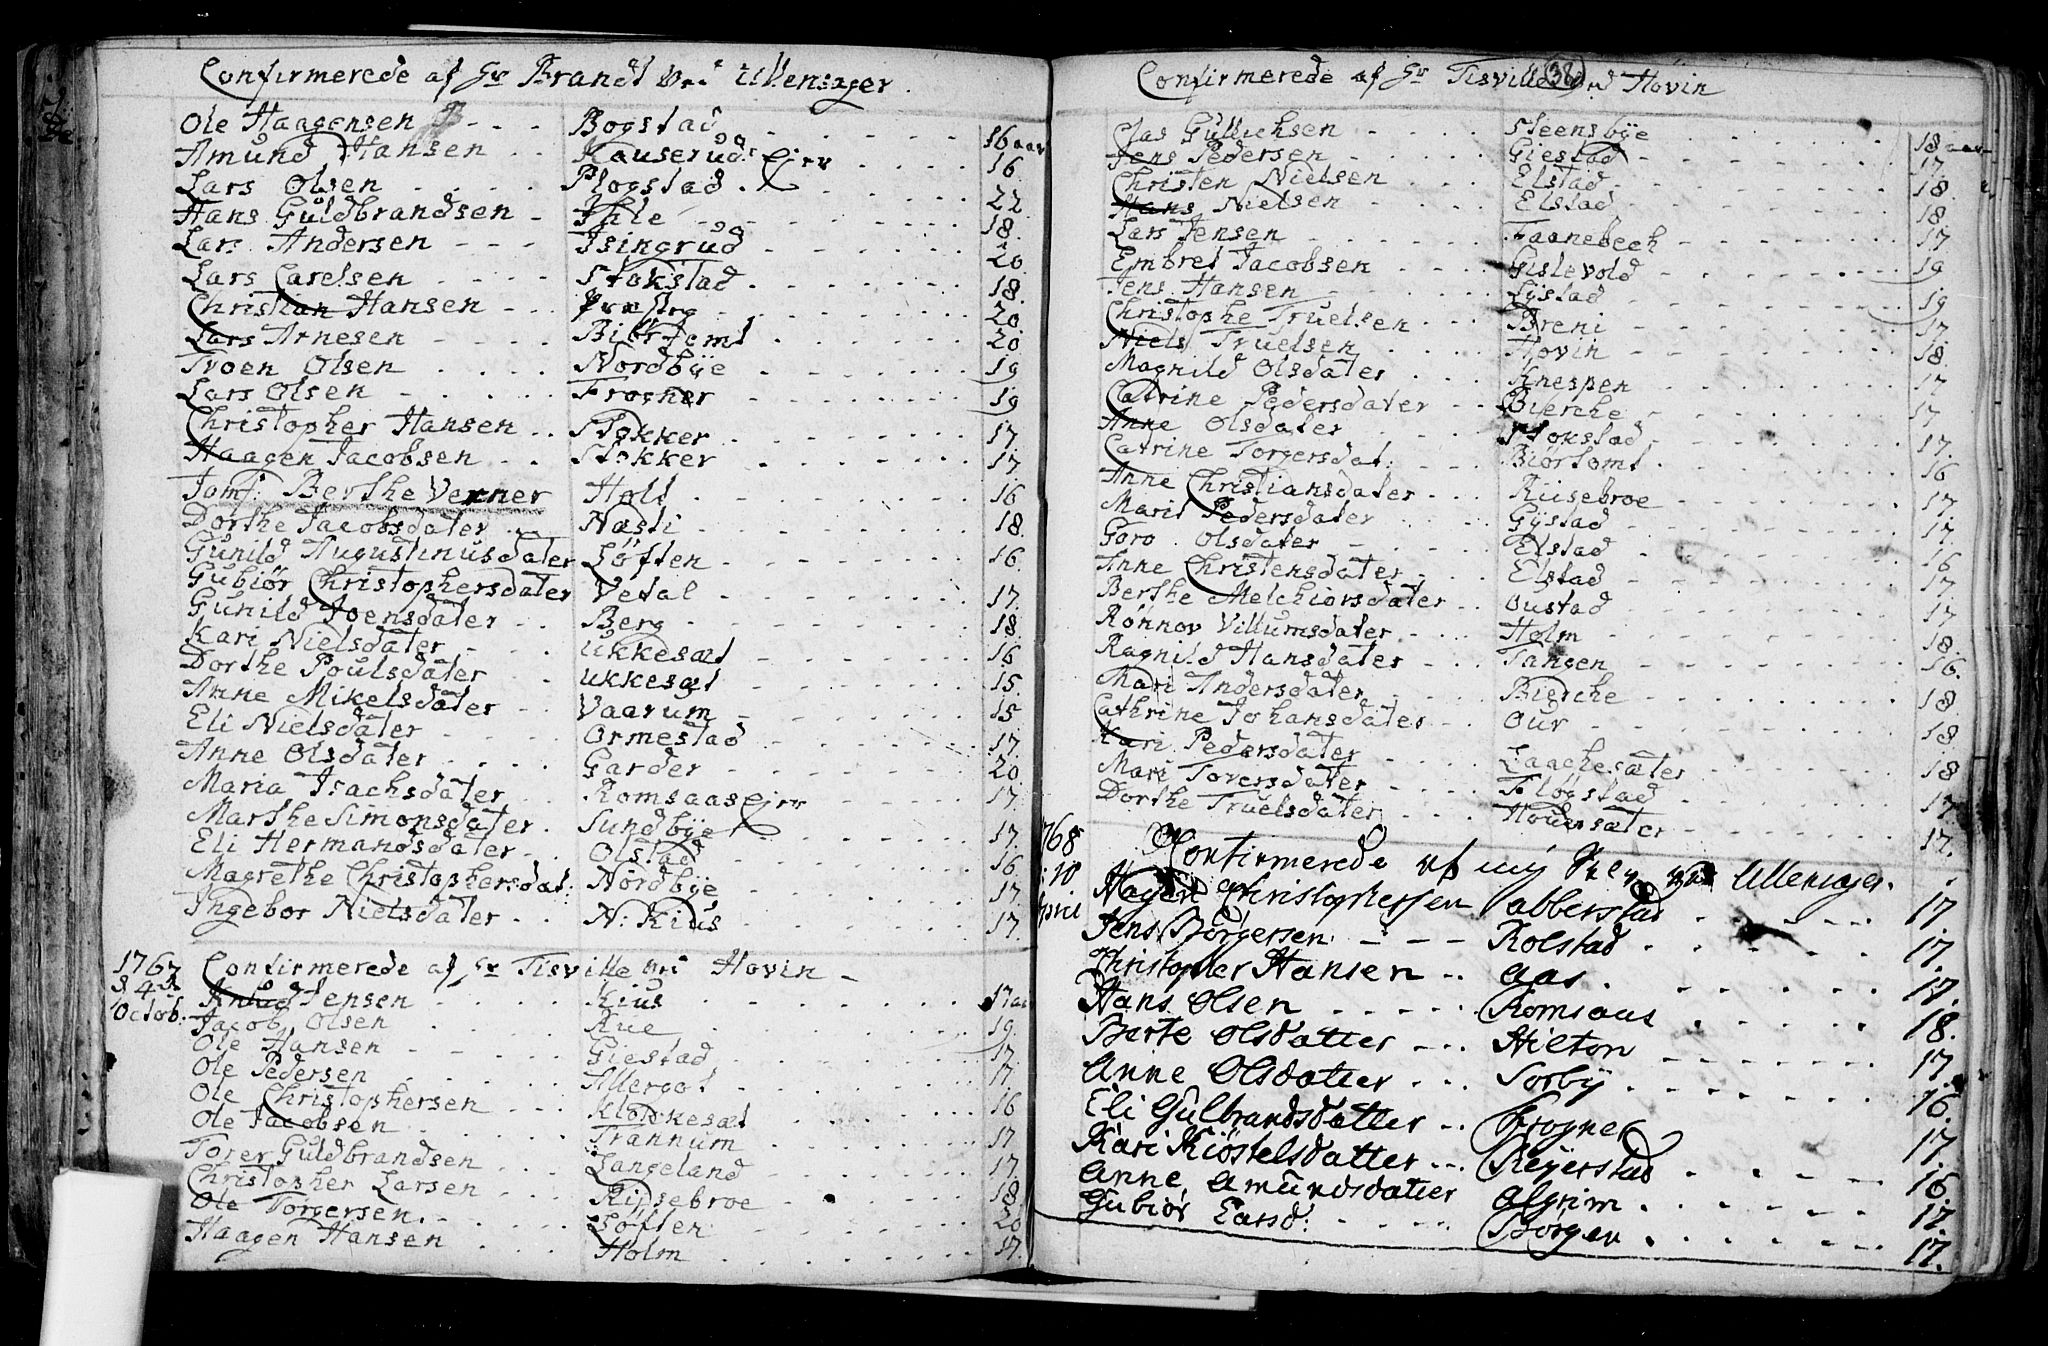 Confirmerede af Hr Brandt Ved Ullensager.
Ole Haagensen Bogstad 16 aar
Amund Hansen Kauserud Ejer 16
Lars Olsen Plogstad 22
Hans Guldbrandsen Ihle 18.
Lars Andersen Isingrud 20
Lars Carelsen Stokstad 18.
Christian Hansen Præstrg 20
Lars Arnesen Biertomt 20
Troen Olsen Nordbÿe 19
Lars Olsen Frogner 19
Christopher Hansen Stokker 17.
Haagen Jacobsen Stokker 17.
Jomf: Berthe Verner Holt 16
Dorthe Jacobsdater Næsti 18.
Gunild Augustinusdater Løften 16.
Gubiør Christophersdater Vetal 17.
Gunild Joensdater Berg 18.
Kari Nielsdater Ukkesæt 16
Dorthe Poulsdater Ukkesæt 15.
Anne Mikelsdater Vaarum 15
Eli Nielsdater Ormestad 17.
Anne Olsdater Garder 20
Maria Isachsdater Romsaas Ejer 17.
Marthe Simonsdater Sundbÿe 17.
Eli Hermandsdater Olstad 16
Magrethe Christophersdat: Nordbÿe 17.
Ingebor Nielsdater N: Kius 17.
1767 Confirmerede af Hr Tisville Ved Hovin
d 4de Octob. Knud Jensen Kius 17 aar
Jacob Olsen Rue 19.
Ole Hansen Giestad 17.
Ole Pedersen Allergot 17
Ole Christophersen Klokkesæt 16
Ole Jacobsen Trannum 17
Torer Guldbrandsen Langeland 17.
Christopher Larsen Riisebroe 18
Ole Torgersen Løften 20
Haagen Hansen Holm 17.
Confirmerede af Hr Tisville Ved Hovin
38
Clas Gullichsen Steensbÿe 18 aar
Jens Pedersen Giestad 17.
Christen Nielsen Elstad 18.
Hans Nielsen Elstad 18
Lars Jensen Faanebech 17
Embret Jacobsen Gislevold 19
Jens Hansen Lÿstad 19
Christophe Truelsen Breni 17
Niels Truelsen Hovin 18.
Magnild Olsdater Knespen 17
Catrine Pedersdater Bierche 17
Anne Olsdater Stokstad 17.
Catrine Torgersdat: Biørtomt 16
Anne Christiansdater Riisebroe 17.
Marit Pedersdater Gÿstad 17.
Goro Olsdater Elstad 16
Anne Christensdater Elstad 17.
Berthe Melchiorsdater Oustad 17
Rønnov Villumsdater Holm 18.
Ragnild Hansdater Tangen 16.
Mari Andersdater Bierche 18
Cathrine Johansdater Our 18
Kari Pedersdater Laachesæter 18
Mari Toversdater Fløgstad 17
Dorthe Truelsdater Hoversæter 17.
1768 Confirmerede af mig ved Ullensager.
d: 10 April Hagen Christophersen Jabberstad 17.
Jens Børgersen Kolstad 17.
Christopher Hansen Aas 17.
Hans Olsen Romsaas 18.
Berte Olsdatter Hilton 17
Anne Olsdatter Sorbÿ 16.
Eli Gulbrandsdatter Frogner 17
Kari Kiøstelsdatter Reÿerstad 16.
Anne Amundsdatter Algrim 17.
Gubiør Larsd: Borgen 17.